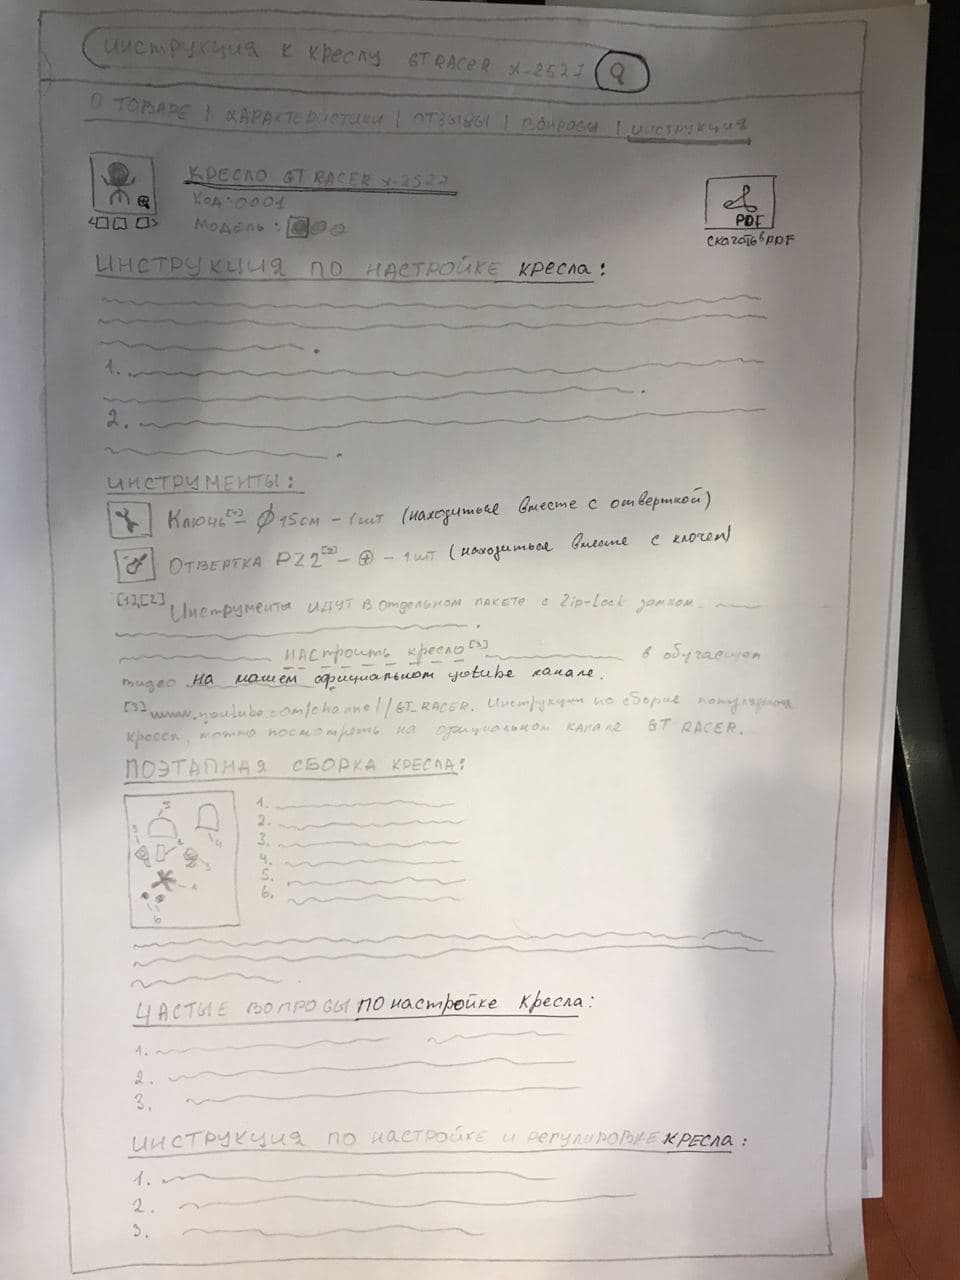 инструкция к креслу GT RACER X-2527
О ТОВАРЕ | ХАРАКТЕРИСТИКИ | ОТЗЫВЫ | ВОПРОСЫ | ИНСТРУКЦИЯ
КРЕСЛО GT RACER X-2527
Код: 0001
Модель:
PDF
скачать в PDF
ИНСТРУКЦИЯ ПО НАСТРОЙКЕ КРЕСЛА:
1.
2.
ИНСТРУМЕНТЫ:
Ключь[1] – Ø 15см – 1 шт (находиться вместе с отверткой)
ОТВЕРТКА PZ2[2] – ⊕ – 1 шт (находиться вместе с ключем)
[1],[2] Инструменты идут в отдельном пакете с Zip-Lock замком.
настроить кресло[3] в обучаещем
видео на нашем официальном yotube канале.
[3] www.youtube.com/channel/GT RACER. Инструкции по сборке популярной
кресел, можно посмотреть на официальном канале GT RACER.
ПОЭТАПНАЯ СБОРКА КРЕСЛА:
1.
2.
3.
4.
5.
6.
ЧАСТЫЕ ВОПРОСЫ ПО настройке Кресла:
1.
2.
3.
ИНСТРУКЦИЯ ПО НАСТРОЙКЕ И РЕГУЛИРОВКЕ КРЕСЛА:
1.
2.
3.